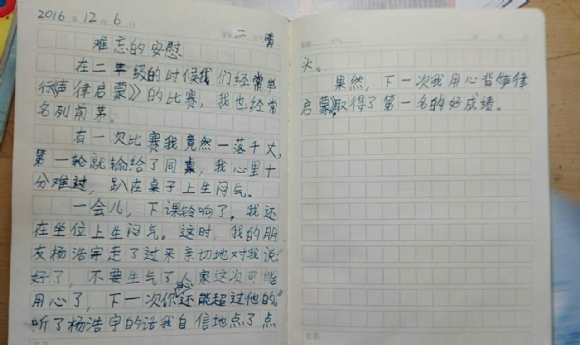 2016年12月6日
二 晴
难忘的安慰
在二年级的时候我们经常举
行《声律启蒙》的比赛，我也经常
名列前茅。
有一次比赛我竟然一落千丈，
第一轮就输给了同桌，我心里十
分难过，趴在桌子上生闷气。
一会儿，下课铃响了。我还
在坐位上生闷气。这时，我的朋
友杨浩宇走了过来亲切地对我说
好了，不要生气了人家这次可能
用心了，下一次你还能超过他的"
听了杨浩宇的话我自信地点了点
头。
果然，下一次我用心背《声律
启蒙》取得了第一名的好成绩。